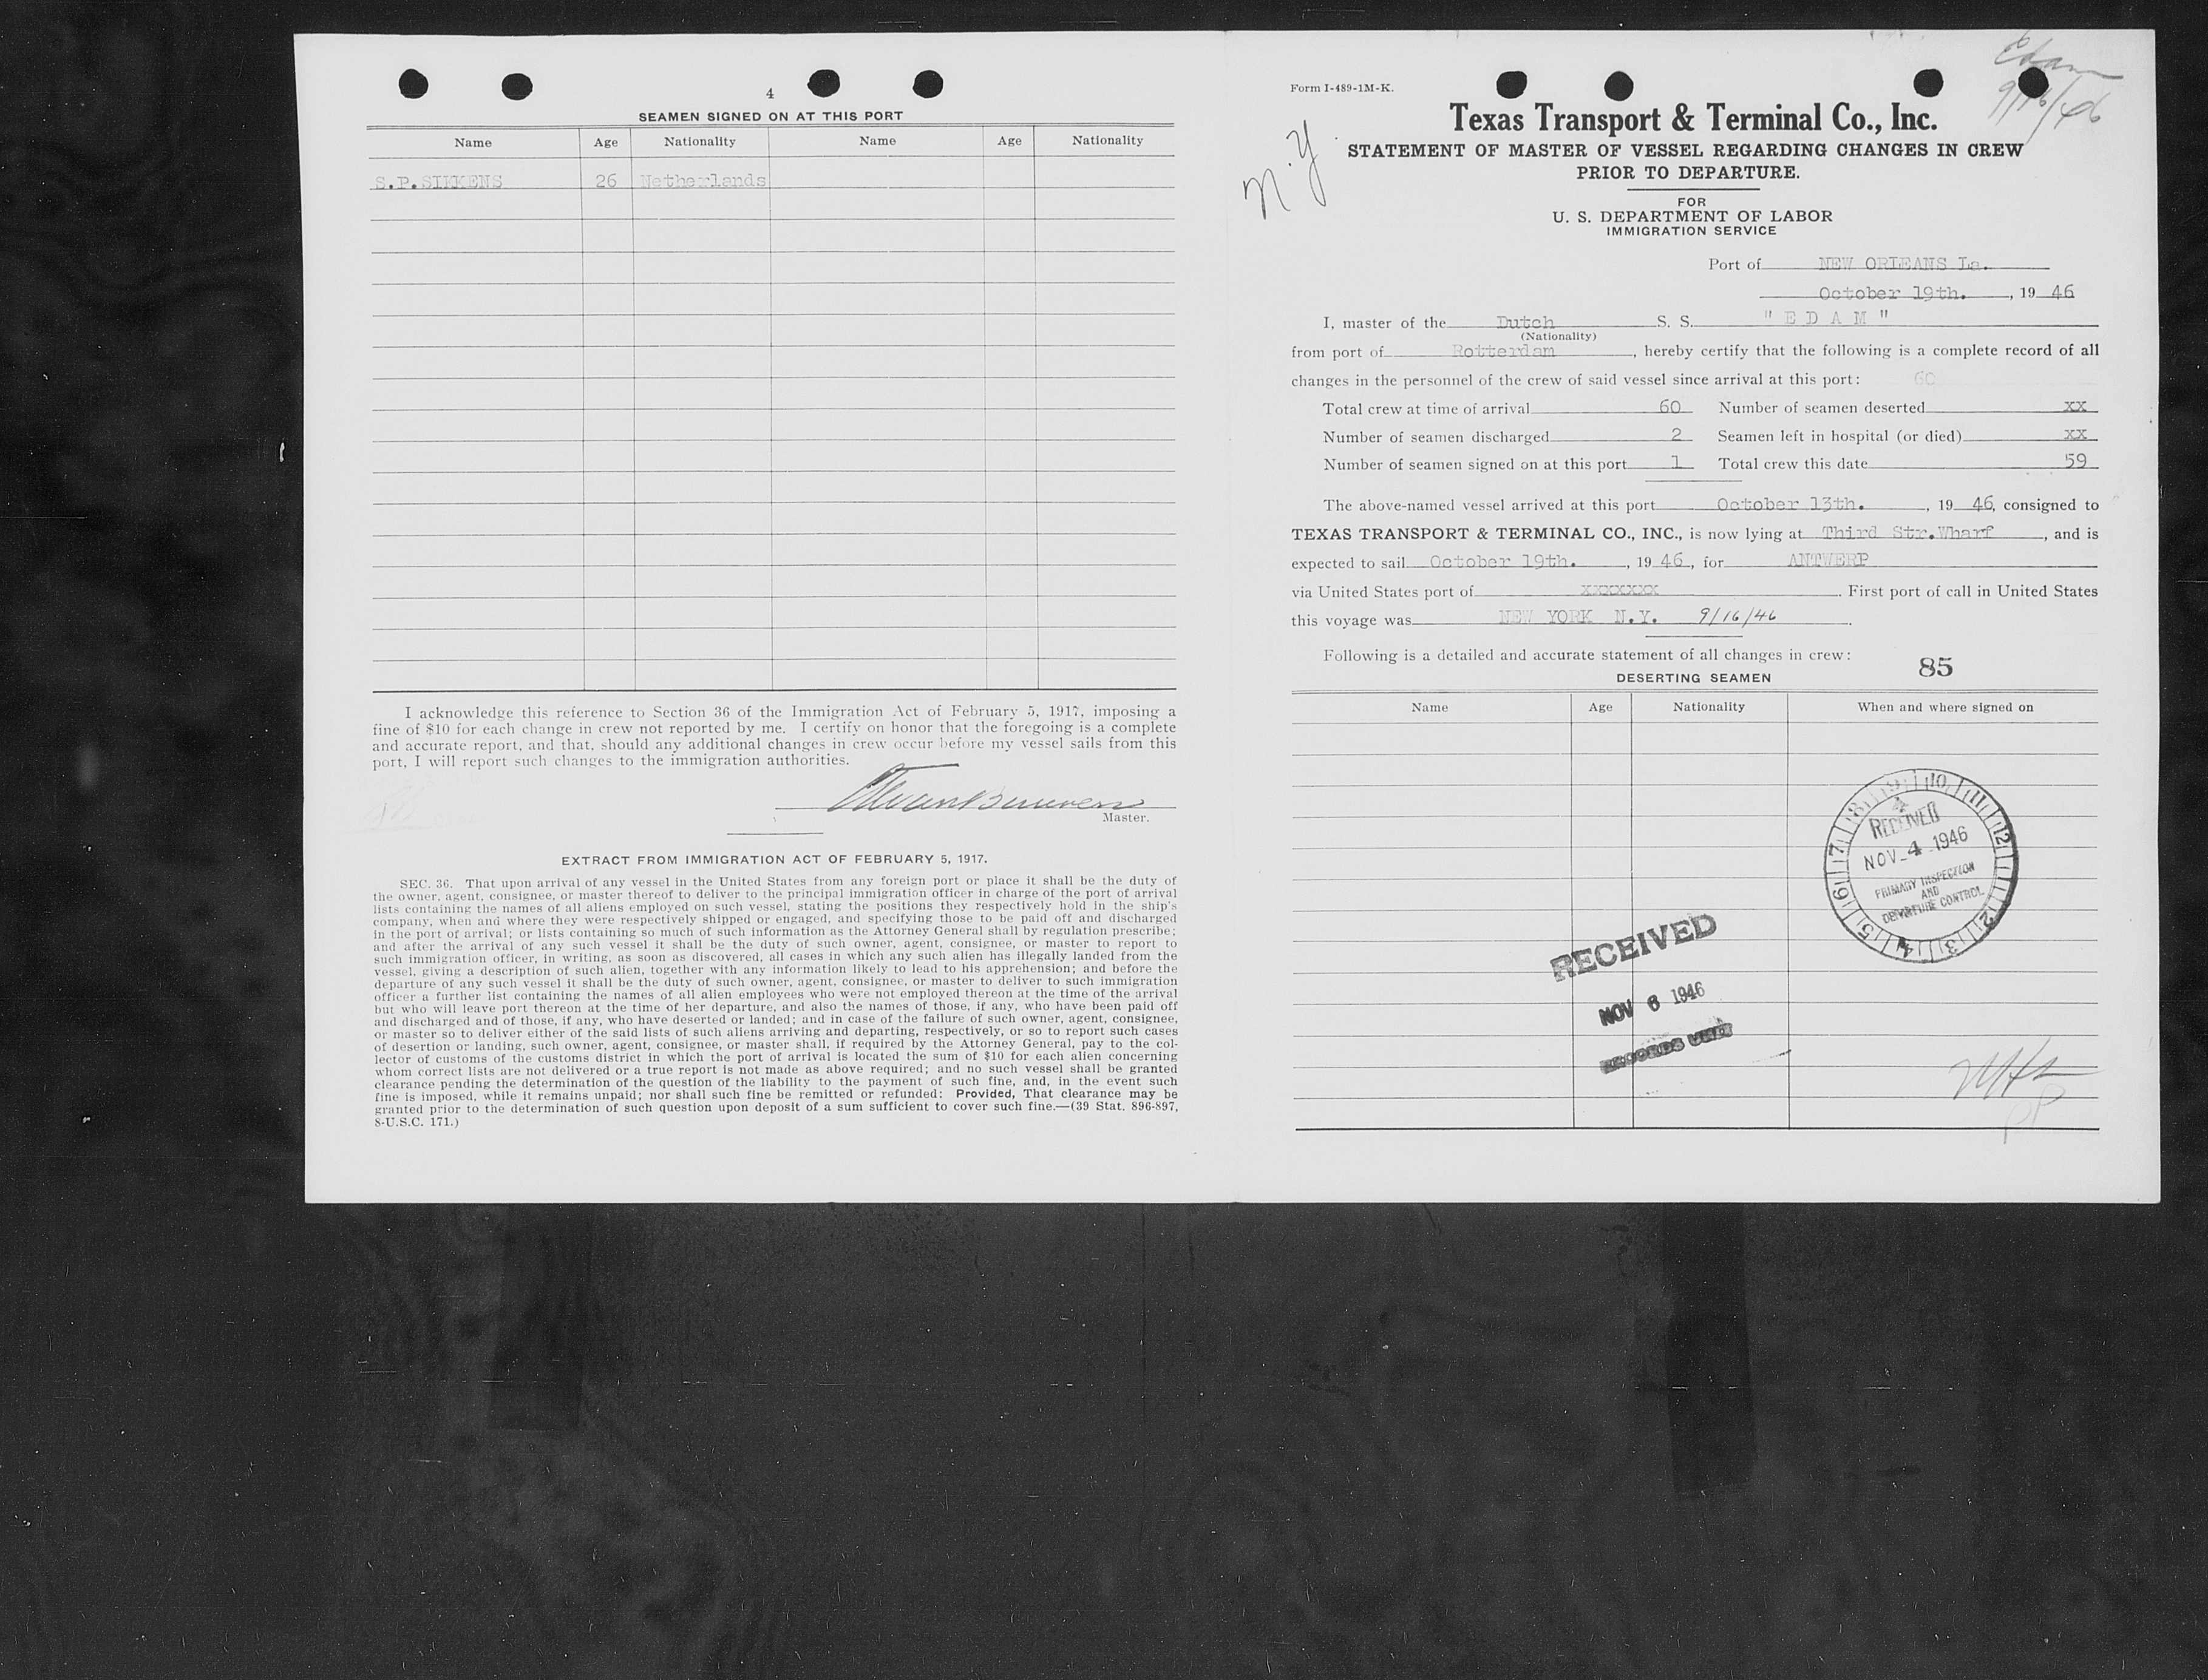 4
SEAMEN SIGNED ON AT THIS PORT
Name Age Nationality Name Age Nationality
S.P.SIKKENS 26 Netherlands
I acknowledge this reference to Section 36 of the Immigration Act of February 5, 1917, imposing a
fine of $10 for each change in crew not reported by me. I certify on honor that the foregoing is a complete
and accurate report, and that, should any additional changes in crew occur before my vessel sails from this
port, I will report such changes to the immigration authorities.
Master.
EXTRACT FROM IMMIGRATION ACT OF FEBRUARY 5, 1917.
SEC. 36. That upon arrival of any vessel in the United States from any foreign port or place it shall be the duty of
the owner, agent, consignee, or master thereof to deliver to the principal inmigration officer in charge of the port of arrival
lists containing the names of all aliens employed on such vessel, stating the positions they respectively hold in the ship's
company, when and where they were respectively shipped or engaged, and specifying those to be paid off and discharged
in the port of arrival; or lists containing so much of such information as the Attorney General shall by regulation prescribe;
and after the arrival of any such vessel it shall be the duty of such owner, agent, consignee, or master to report to
such immigration officer, in writing, as soon as discovered, all cases in which any such alien has illegally landed from the
vessel, giving a description of such alien, together with any information likely to lead to his apprehension; and before the
departure of any such vessel it shall be the duty of such owner, agent, consignee, or master to deliver to such immigration
officer a further list containing the names of all alien employees who were not employed thereon at the time of the arrival
but who will leave port thereon at the time of her departure, and also the names of those, if any, who have been paid off
and discharged and of those, if any, who have deserted or landed; and in case of the failure of such owner, agent, consignee,
or master so to deliver either of the said lists of such aliens arriving and departing, respectively, or so to report such cases
of desertion or landing, such owner, agent, consignee, or master shall, if required by the Attorney General, pay to the col-
lector of customs of the customs district in which the port of arrival is located the sum of $10 for each alien concerning
whom correct lists are not delivered or a true report is not made as above required; and no such vessel shall be granted
clearance pending the determination of the question of the liability to the payment of such fine, and, in the event such
fine is imposed, while it remains unpaid; nor shall such fine be remitted or refunded: Provided, That clearance may be
granted prior to the determination of such question upon deposit of a sum sufficient to cover such fine.—(39 Stat. 896-897,
8-U.S.C. 171.)
Edam
9/16/46
Form I-489-1M-K.
N.Y.
Texas Transport & Terminal Co., Inc.
STATEMENT OF MASTER OF VESSEL REGARDING CHANGES IN CREW
PRIOR TO DEPARTURE.
FOR
U. S. DEPARTMENT OF LABOR
IMMIGRATION SERVICE
Port of NEW ORLEANS La.
October 19th. , 19 46
I, master of the Dutch S. S. " E D A M "
(Nationality)
from port of Rotterdam , hereby certify that the following is a complete record of all
changes in the personnel of the crew of said vessel since arrival at this port: 60
Total crew at time of arrival 60 Number of seamen deserted xx
Number of seamen discharged 2 Seamen left in hospital (or died) xx
Number of seamen signed on at this port 1 Total crew this date 59
The above-named vessel arrived at this port October 13th. , 19 46, consigned to
TEXAS TRANSPORT & TERMINAL CO., INC., is now lying at Third Str.Wharf , and is
expected to sail October 19th. , 19 46, for ANTWERP
via United States port of XXXXXXX . First port of call in United States
this voyage was NEW YORK N.Y. 9/16/46 .
Following is a detailed and accurate statement of all changes in crew:
85
DESERTING SEAMEN
Name Age Nationality When and where signed on
RECEIVED
NOV 4 1946
PRIMARY INSPECTION
AND
DEPARTURE CONTROL
RECEIVED
NOV 6 1946
RECORDS UNIT